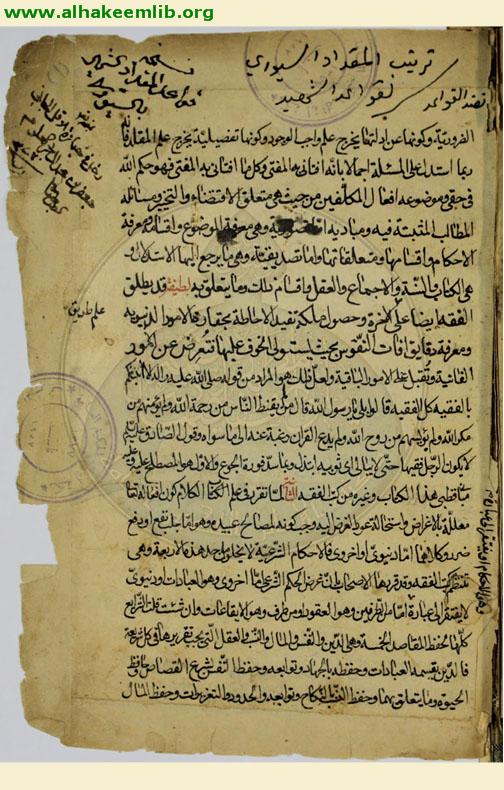 www.alhakeemlib.org
ترتيب المقداد السيوري
لقواعد الشهيد
نضد القواعد
الفرورية وكونها عن ادلتها يخرج علم واجب الوجود وكونها تفصيلية يخرج علم المقلد فانه
ربما استدل على المسئلة اجمالا بانه افتاني به المفتي وكل ما افتاني به المفتي فهو حكم الله
في حقي وموضوعه افعال المكلفين من حيث هي متعلق الاقتضاء والتخيير ومسائله
المطالب المثبتة فيه ومباديه اما تصورية وهي معرفة الموضوع واقسامه ومعرفة
الاحكام واقسامها ومتعلقاتها واما تصديقية وهي ما يرجع اليها الاستدلال
هي الكتاب والسنة والاجماع والعقل واقسام ذلك وما يتعلق به لطيفة قد يطلق
الفقه ايضا على الآخرة وحصول ملكة تفيد الاحاطة بحقارة الامور الدنيوية
ومعرفة دقايق افات النفوس بحيث يستولى الخوف عليها فتعرض عن الامور
الفانية وتقبل على الامور الباقية ولعل ذلك هو المراد من قوله صلى الله عليه واله الا انبئكم
بالفقيه كل الفقيه قالوا بلى يا رسول الله قال من لم يقنط الناس من رحمة الله ولم يؤمنهم من
مكر الله ولم يؤيسهم من روح الله ولم يدع القران رغبة عنه الى ما سواه وقول الصادق عليه السلم
لا يكون الرجل فقيها حتى لا يبالي اى ثوبيه ابتذل وبما سد فورة الجوع والاول هو المصطلح عليه
فيما قبلي هذا الكتاب وغيره من كتب الفقه الثانية لما تقرر في علم الكلام كون افعاله تعالى
معللة بالاغراض واستحالة عود الغرض اليه وجب كونه لمصالح عبيده وهو اما جلب نفع او دفع
ضرر وكلاهما اما دنيوى او اخروى فالاحكام الشرعية لا يخلو عن احد هذه الاربعة وهي
كتب الفقه وقد قررها الاصحاب بان غرض الحكم الشرعي اما اخروى وهو العبادات او دنيوى
لا يفتقر الى عبارة اما من الطرفين وهو العقود او من طرف وهو الايقاعات وان شئت قلت الشرايع
كلها لحفظ المقاصد الخمسة وهي الدين والنفس والمال والنسب والعقل التي يجب تقريرها في كل شريعة
فالدين بقسمه العبادات وحفظه بالجهاد وتوابعه وحفظ النفس شرع القصاص وحافظ
الحيوة وما يتعلق بهما وحفظ النسب النكاح وتوابعه والحدود والتعزيرات وحفظ المال